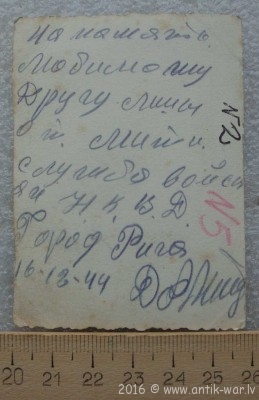 На память
Любимому
Другу
Мити
N2
служба войск
N5
Н.К.В.Д
Город Рига
16-12-44
20 21 22 23 24 25 26
2016 © www.antik-war.lv